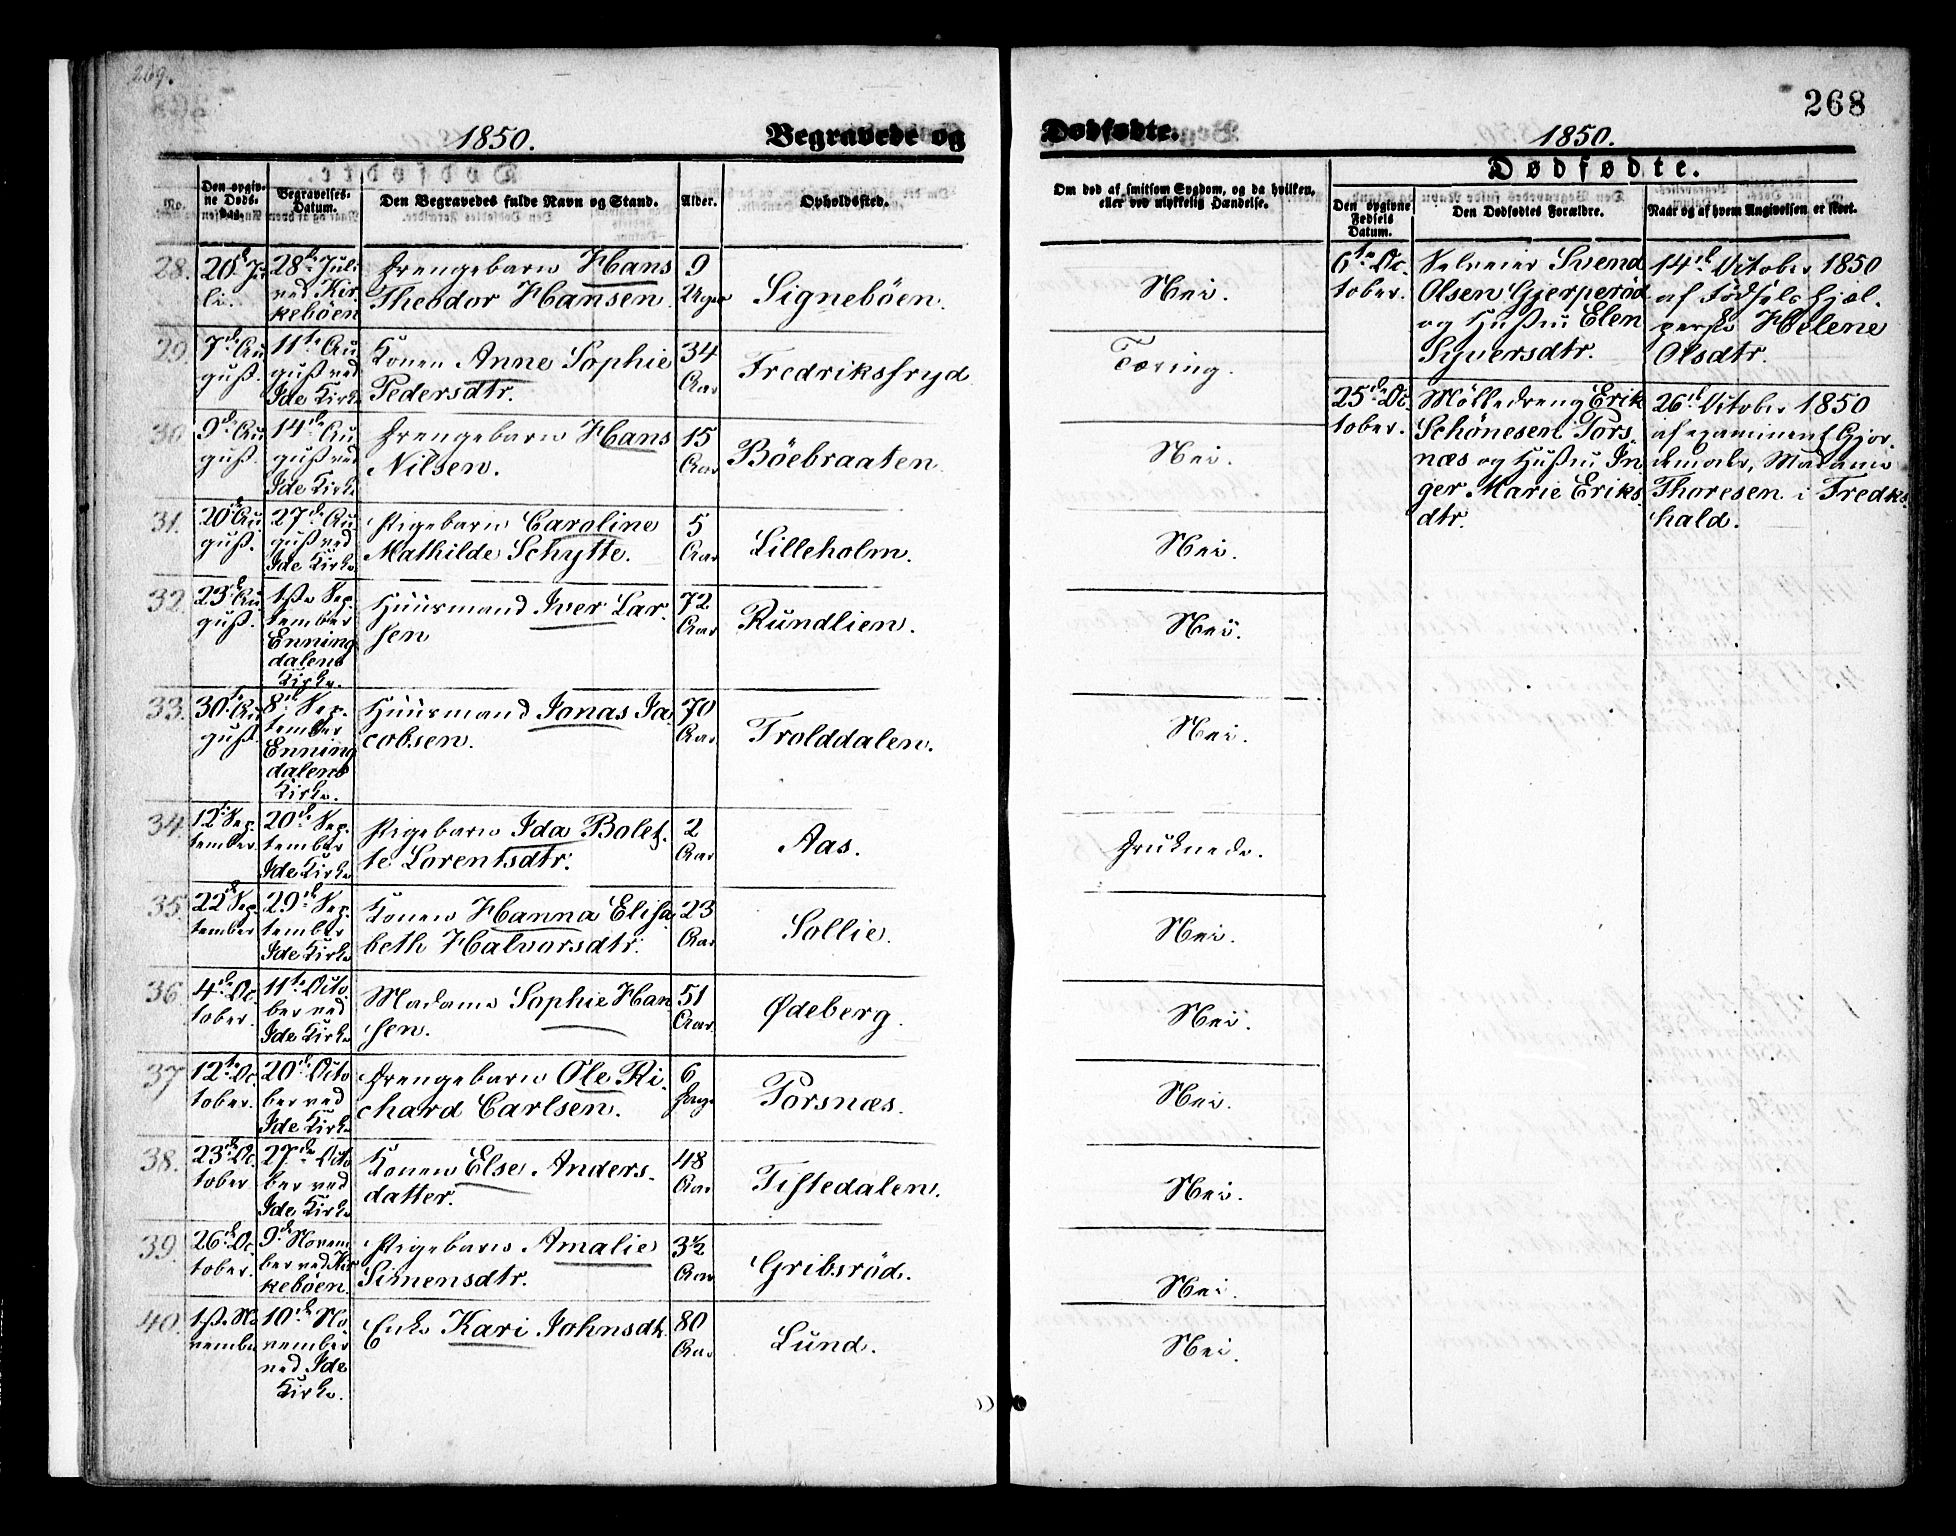 269.
268
1850.
Begravede og
Dødfødte.
1850.
No.
Den opgivne Døds-Dag.
Begravelses-Datum.
Den Begravedes fulde Navn og Stand.
Alder.
Opholdssted.
Om død af smitsom Sygdom, og da hvilken,
eller ved ulykkelig Hændelse.
Dødfødte.
Den opgivne
Fødsels
Datum.
Den Dødfødtes Forældre.
Naar og af hvem Angivelsen er skeet.
28.
20de Ju-
li.
28de Juli
ved Kir-
keböen
Drengebarn Hans
Theodor Hansen.
9
Uger
Signeböen.
Nei.
29.
7de Au
gust.
11te Au
gust ved
Ide Kirke
Konen Anne Sophie
Pedersdtr.
34
Aar
Fredriksfryd
Tæring.
30
9de Au
gust.
14de Au
gust ved
Ide Kirke
Drengebarn Hans
Nilsen.
15
Aar
Böebraaten.
Nei.
31.
20de Au
gust.
27de Au
gust ved
Ide Kirke
Pigebarn Caroline
Mathilde Schytte.
5
Aar
Lilleholm.
Nei.
32.
23de Au
gust.
1ste Sep-
tember
Enning
dalens
Kirke.
Huusmand Iver Lar-
sen
72
Aar
Rundlien.
Nei.
33.
30te Au
gust.
8de Sep-
tember
Enning
dalens
Kirke.
Huusmand Jonas Ja
cobsen.
70
Aar
Trolddalen.
Nei.
34.
12te Sep-
tember.
20de Sep-
tember
Ide Kirke
Pigebarn Ida Bolet-
te Lorentsdtr.
2
Aar
Aas.
Druknede.
35.
22de Sep-
tember
29de Sep-
tember
Ide Kirke
Konen Hanna Elisa
beth Halvorsdtr.
23
Aar
Sollie.
Nei.
36
4de Oc-
tober.
11te Octo
ber ved
Ide Kirke
Madame Sophie Han
sen.
51
Aar.
Ødeberg.
Nei.
37
12te Oc
tober.
20de Octo
ber ved
Ide Kirke
Drengebarn Ole Ri-
chard Carlsen.
6
Dage
Porsnæs.
Nei.
38.
23de Oc
tober
27de Octo
ber ved
Ide Kirke
Konen Else Anders-
datter.
48
Aar
Tistedalen.
Nei.
39.
26de Oc
tober.
9de Novem
ber ved Kir
keböen.
Pigebarn Amalie
Simensdtr.
3½
Aar
Gribsröd.
Nei.
40.
1ste No
vember
10de No-
vember
ved Ide
Kirke.
Enke Kari Johnsdtr.
80
Aar
Lund.
Nei.
6te Oc-
tober.
Selveier Svend
Olsen Gjerperöd
og Hustru Elen
Syversdtr.
14de October 1850
af Födselshjæl-
perske Helene
Olsdtr.
25de Oc
tober.
Mölledreng Erik
Schönesen Pors-
næs og Hustru In
ger Marie Eriks
dtr.
26de October 1850
af examineret Gjor-
demoder, Madame
Thoresen i Fredks-
hald.